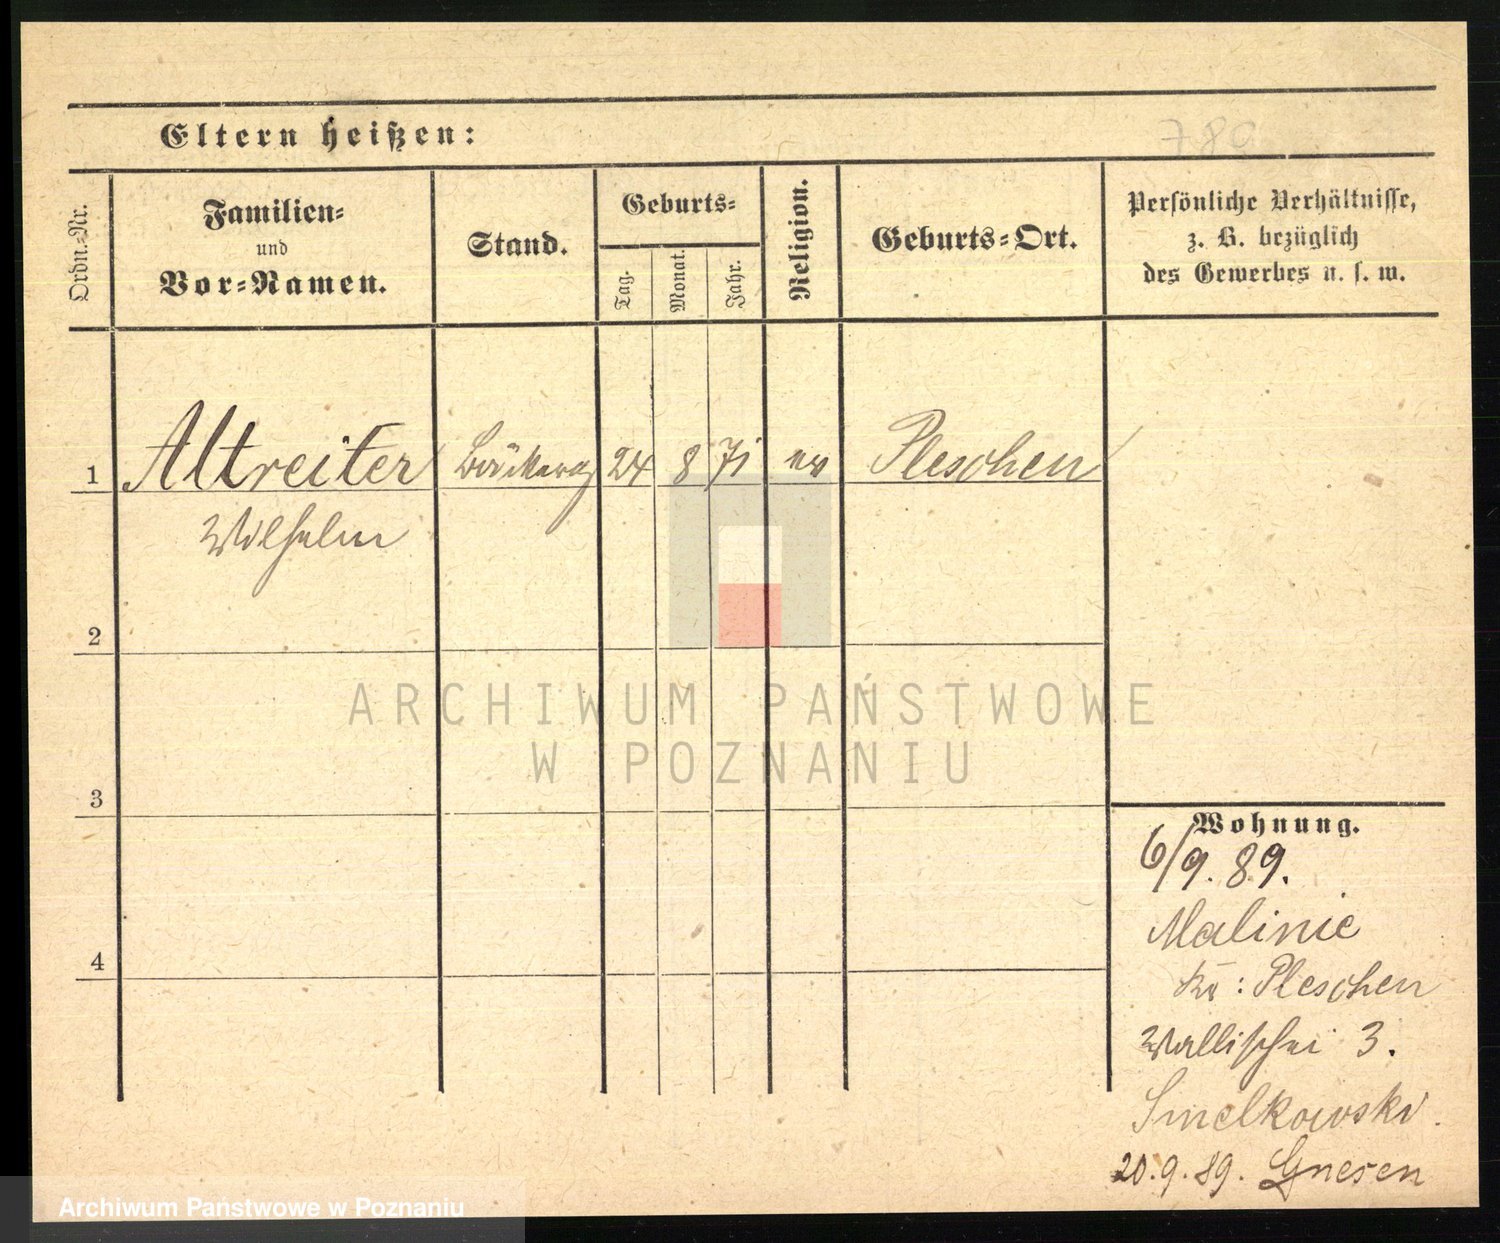 780
Eltern heißen:
Ordn.-Nr.
Familien-
und
Vor-Namen.
Stand.
Geburts-
Tag.
Monat.
Jahr.
Religion.
Geburts-Ort.
Persönliche Verhältnisse,
z. B. bezüglich
des Gewerbes u. s. w.
1 Altreiter 24 8 71 ev Pleschen
Wilhelm
2
3
4
ARCHIWUM PAŃSTWOWE
W POZNANIU
Wohnung.
6/9. 89.
Malinie
Kr: Pleschen
Wallischei 3.
Smelkowski.
20.9.89. Gnesen
Archiwum Państwowe w Poznaniu